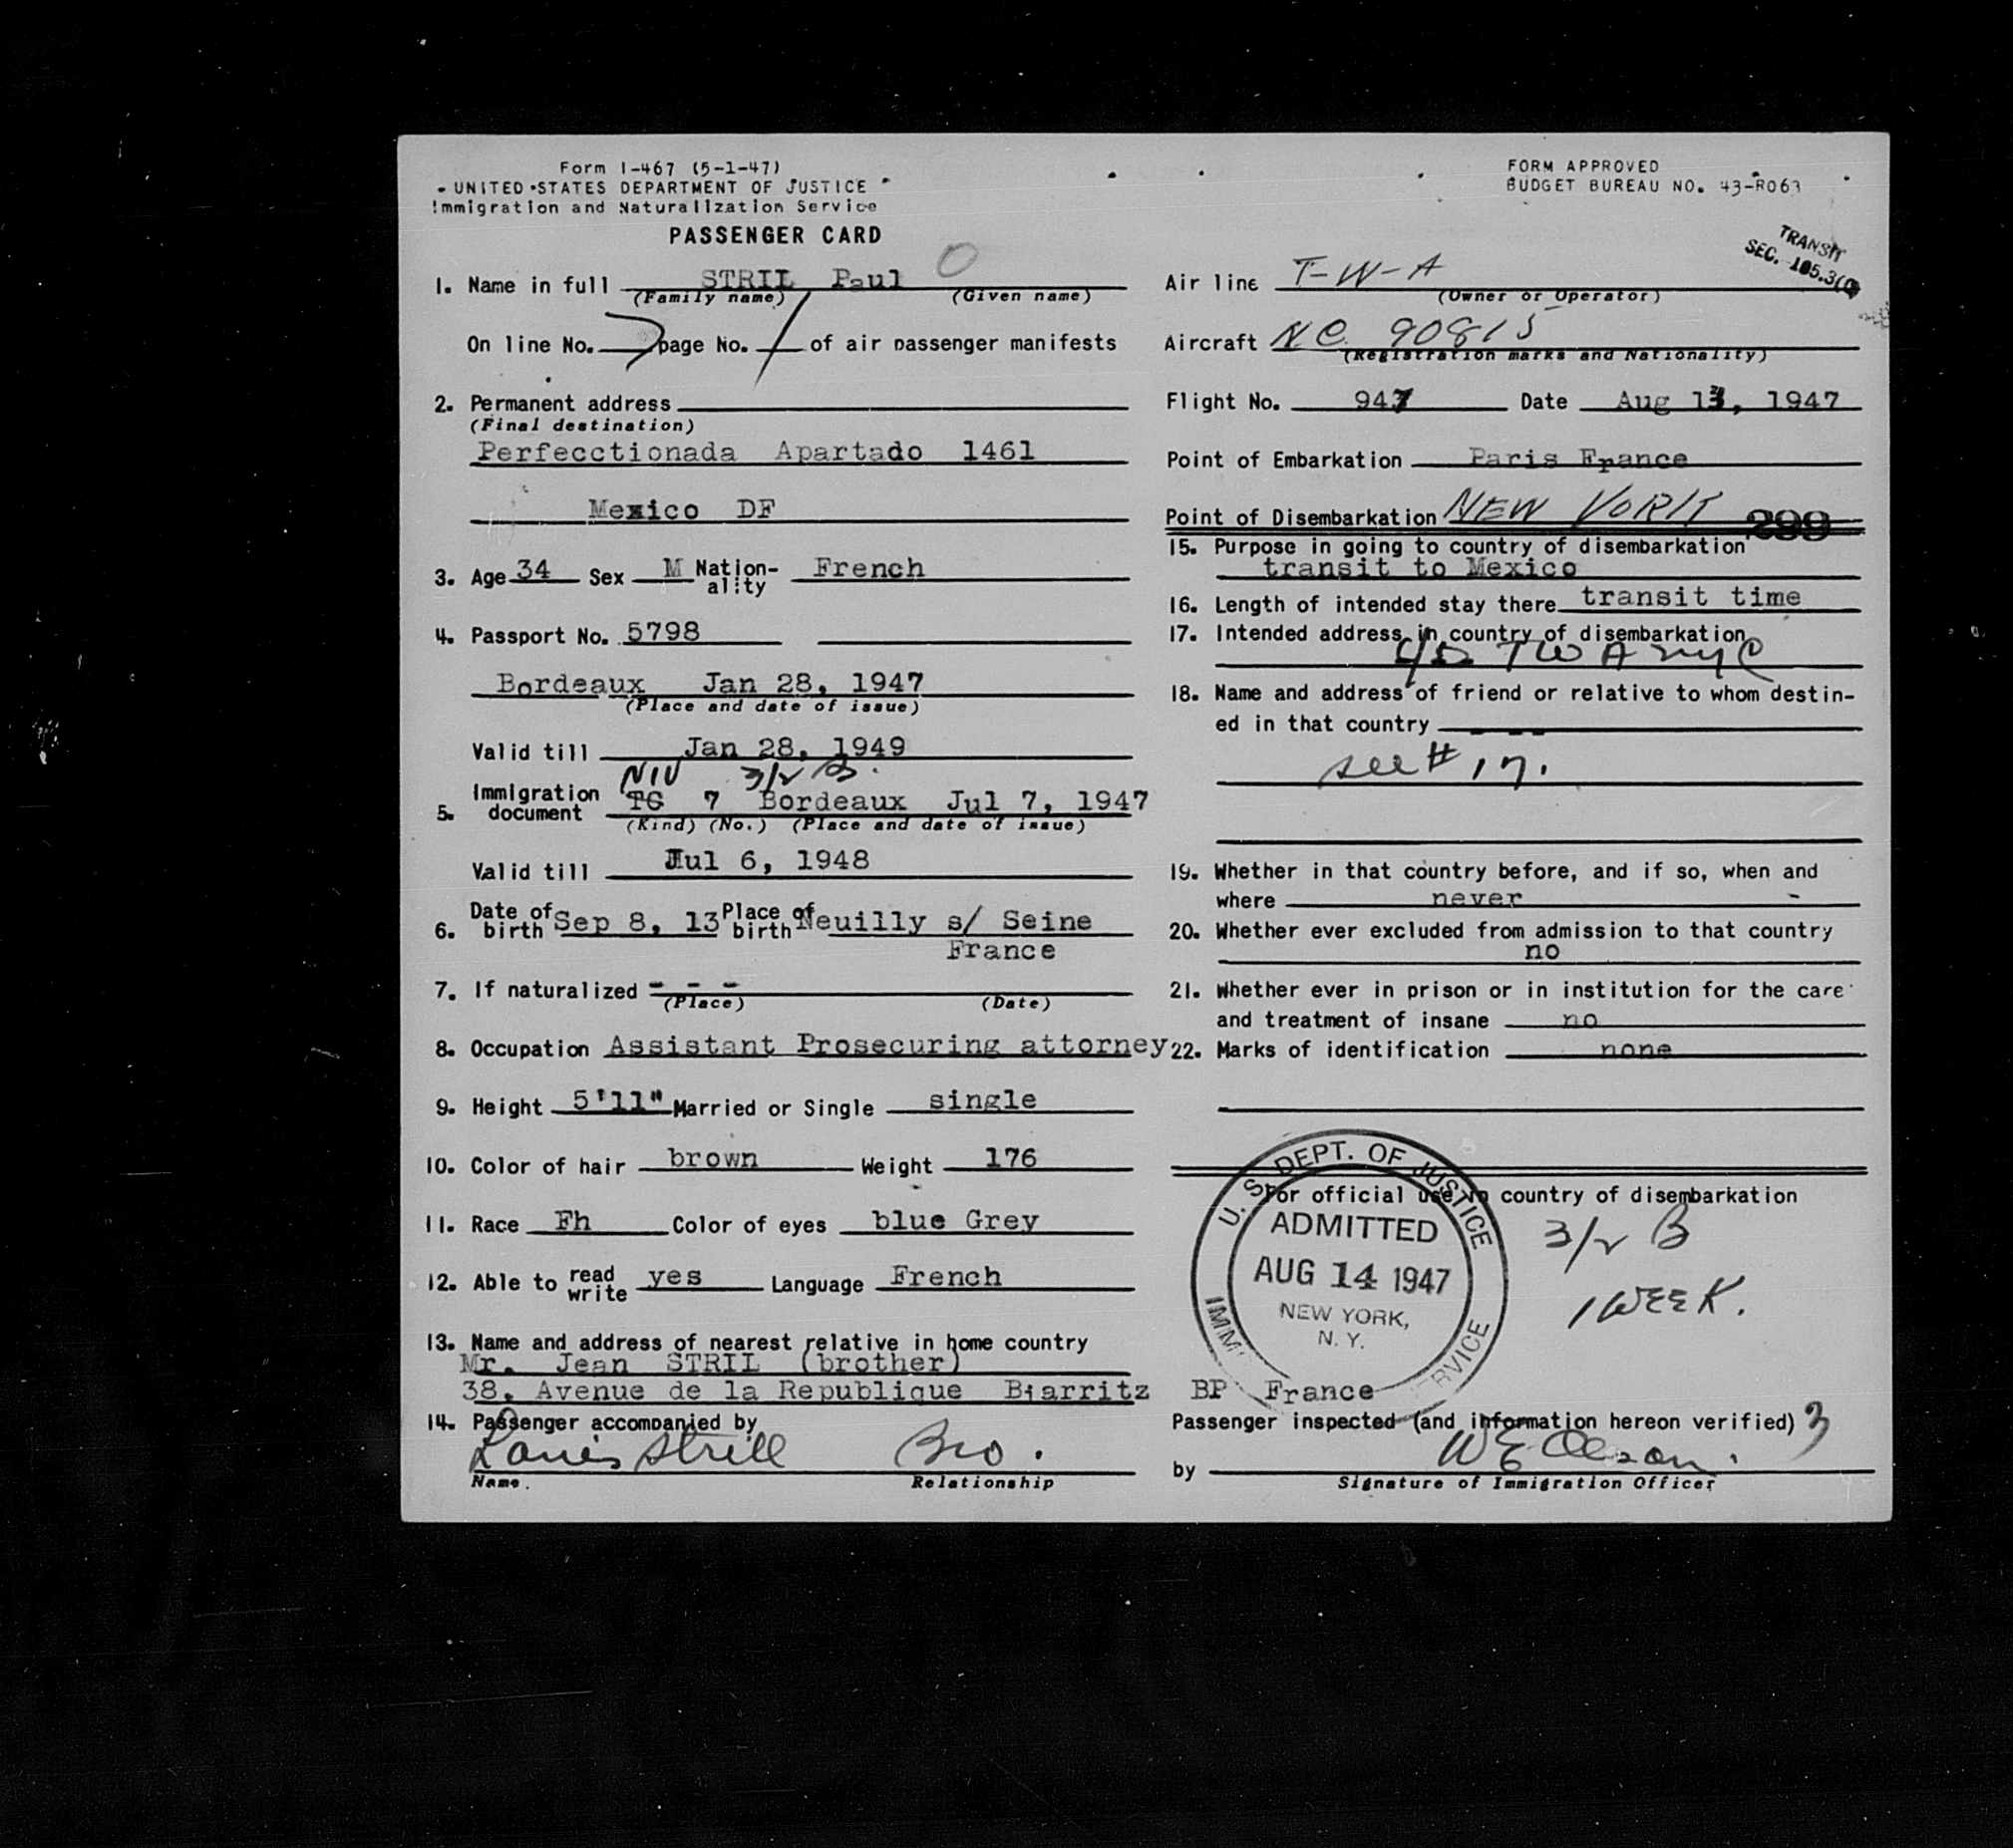 Form I-467 (5-1-47)
UNITED STATES DEPARTMENT OF JUSTICE
Immigration and Naturalization Service
PASSENGER CARD
FORM APPROVED
BUDGET BUREAU NO. 43-R063
TRANSIT
SEC. 105.3(
1. Name in full STRIL Paul
(Family name) (Given name)
On line No. 7 page No. 1 of air passenger manifests
2. Permanent address
(Final destination)
Perfecctionada Apartado 1461
Mexico DF
3. Age 34 Sex M Nation-ality French
4. Passport No. 5798
Bordeaux Jan 28, 1947
(Place and date of issue)
Valid till Jan 28, 1949
NIV 3/2 B.
5. Immigration document TC 7 Bordeaux Jul 7, 1947
(Kind) (No.) (Place and date of issue)
Valid till Jul 6, 1948
6. Date of birth Sep 8, 13 Place of birth Neuilly s/ Seine
France
7. If naturalized - - -
(Place) (Date)
8. Occupation Assistant Prosecuring attorney
9. Height 5'11" Married or Single single
10. Color of hair brown Weight 176
11. Race Fh Color of eyes blue Grey
12. Able to read write yes Language French
13. Name and address of nearest relative in home country
Mr. Jean STRIL (brother)
38, Avenue de la Republique Biarritz BP France
14. Passenger accompanied by
Louis Strill Bro.
Name. Relationship
Air line T-W-A
(Owner or Operator)
Aircraft N.C. 90815
(Registration marks and Nationality)
Flight No. 947 Date Aug 13, 1947
Point of Embarkation Paris France
Point of Disembarkation NEW YORK 299
15. Purpose in going to country of disembarkation
transit to Mexico
16. Length of intended stay there transit time
17. Intended address in country of disembarkation
c/o TWA NYC
18. Name and address of friend or relative to whom destin-
ed in that country - - -
see # 17.
19. Whether in that country before, and if so, when and
where never -
20. Whether ever excluded from admission to that country
no
21. Whether ever in prison or in institution for the care
and treatment of insane no
22. Marks of identification none
For official use in country of disembarkation
U. S. DEPT. OF JUSTICE
ADMITTED
AUG 14 1947
NEW YORK,
N. Y.
3/2 B
1 WEEK.
Passenger inspected (and information hereon verified) 3
by W E Olson.
Signature of Immigration Officer